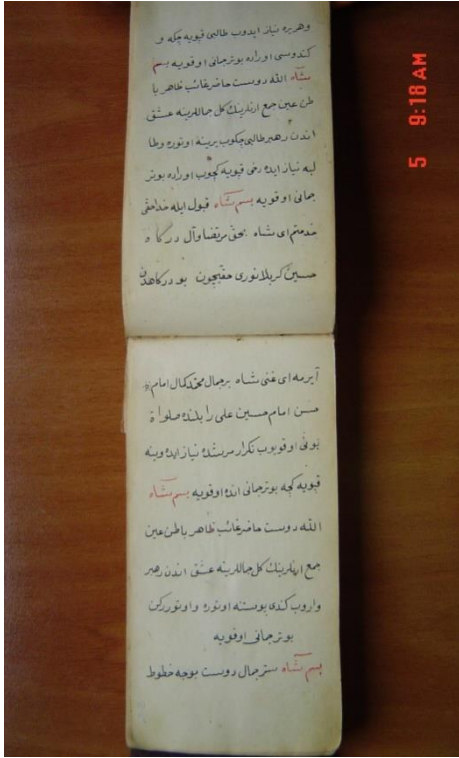 و هریره نیاز ایدوب طالبی قپویه چکه و
کندوسی اوراده بو ترجمانی اوقویه بسم
شاه الله دوست حاضر غائب ظاهر با
طن عین جمع ارنلرینك کل جماللرینه عشق
اندن رهبر طالبی چکوب یرینه اوتوره و طا
لبه نیاز ایده رفی قپویه کچوب اوراده بو تر
جمانی اوقویه بسم شاه قبول ایله خدا حقی
خدمتم ای شاه بحق مرتضا و آل درگا و
حسین کربلا نوری حقیچون بو درکاهدن
آیرمه ای غنی شاه بر جمال محمد کمال امام
حسن امام حسین علی را بلنده صلواة
بونی اوقویوب تکرار مرشده نیاز ایده وینه
قپویه کچه بو ترجمانی انده اوقویه بسم شاه
الله دوست حاضر غائب ظاهر باطن عین
جمع ارنلرینك کل جماللرینه عشق اندن رهبر
واروب کندی پوستنه اوتوره و اوتوررکن
بو ترجمانی اوقویه
بسم شاه ستر جمال دوست بوجه خطوط
5 9:18 AM